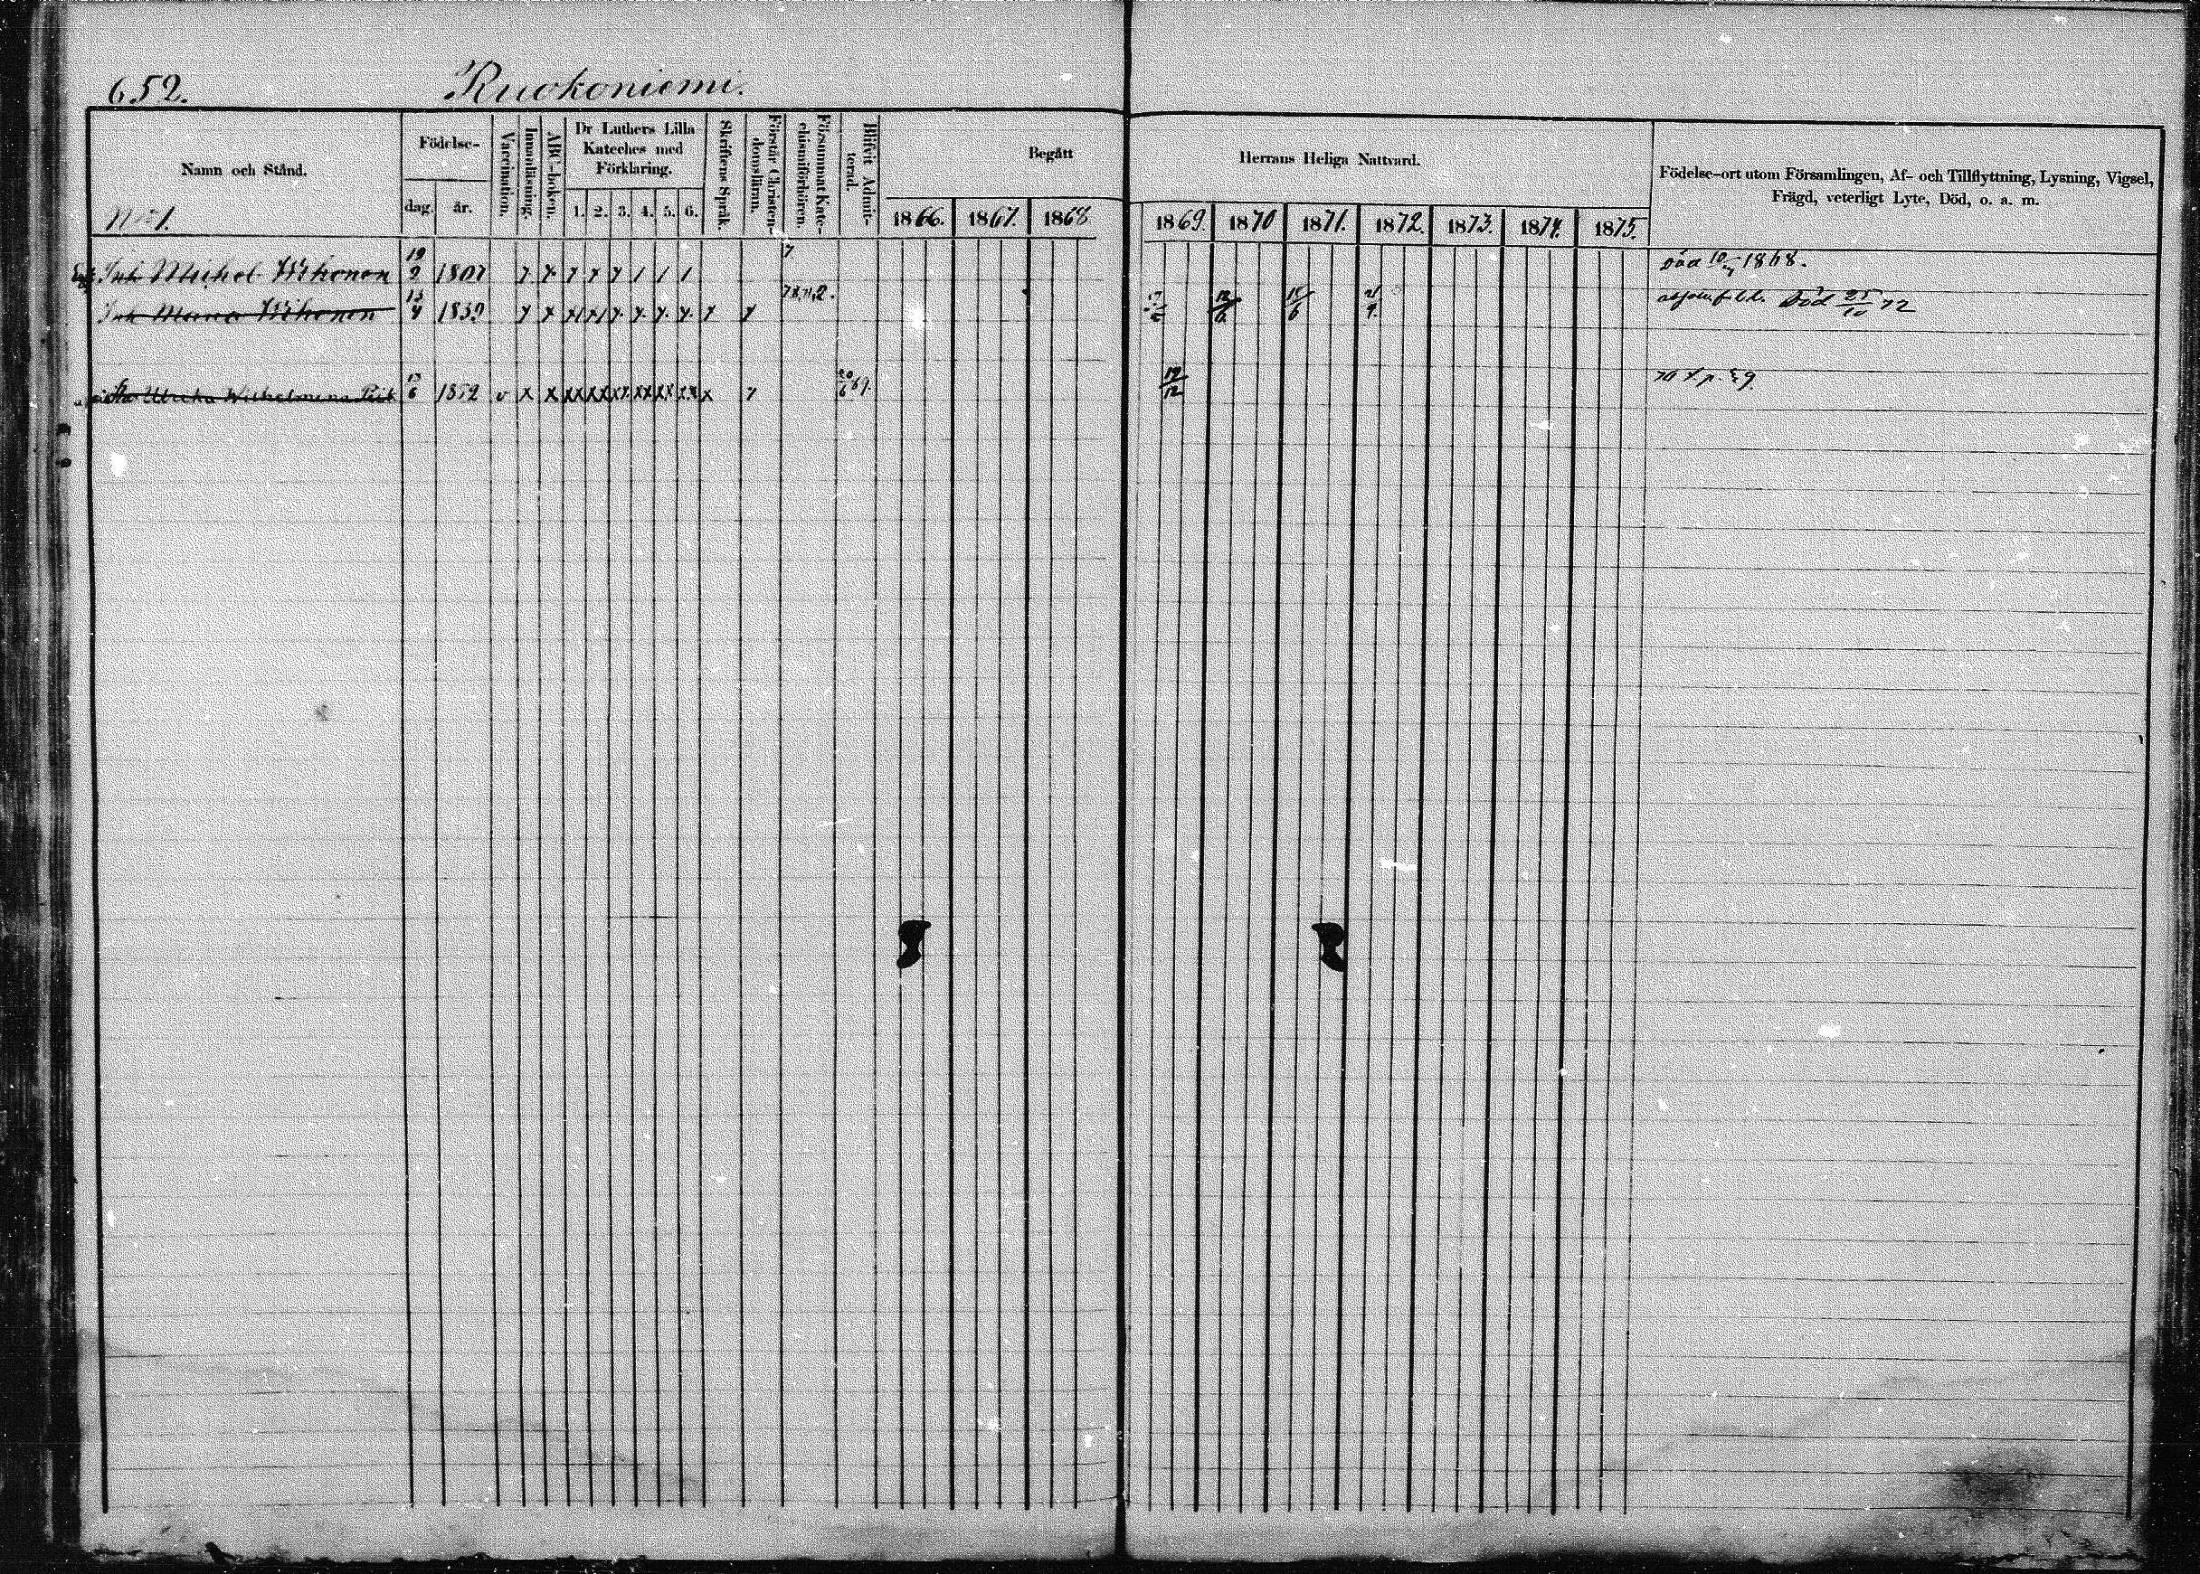 652. Ruokoniemi.
Namn och Stånd.
Födelse-
dag. år.
Vaccination.
Innanläsning.
ABC-boken.
Dr Luthers Lilla
Kateches med
Förklaring.
1. 2. 3. 4. 5. 6.
Skriftens Språk.
Förstår Christen-
domslären.
Försummat Kate-
chismiförhören.
Blifvit Admit-
terad.
Begått Herrans Heliga Nattvard.
1866. 1867. 1868 1869. 1870 1871. 1872. 1873. 1874. 1875.
Födelse-ort utom Församlingen, Af- och Tillflyttning, Lysning, Vigsel,
Frägd, veterligt Lyte, Död, o. a. m.
No 1.
Inh Michel Wihonen 19/9 1807 7 Död 1868.
Inh Maria Wihonen 13/4 1839 12/6 Död 25/10 72
Ulrika Wilhelmina 6 1852 v x x xx xx xx xx xx xx x 20/6 69. 19/12